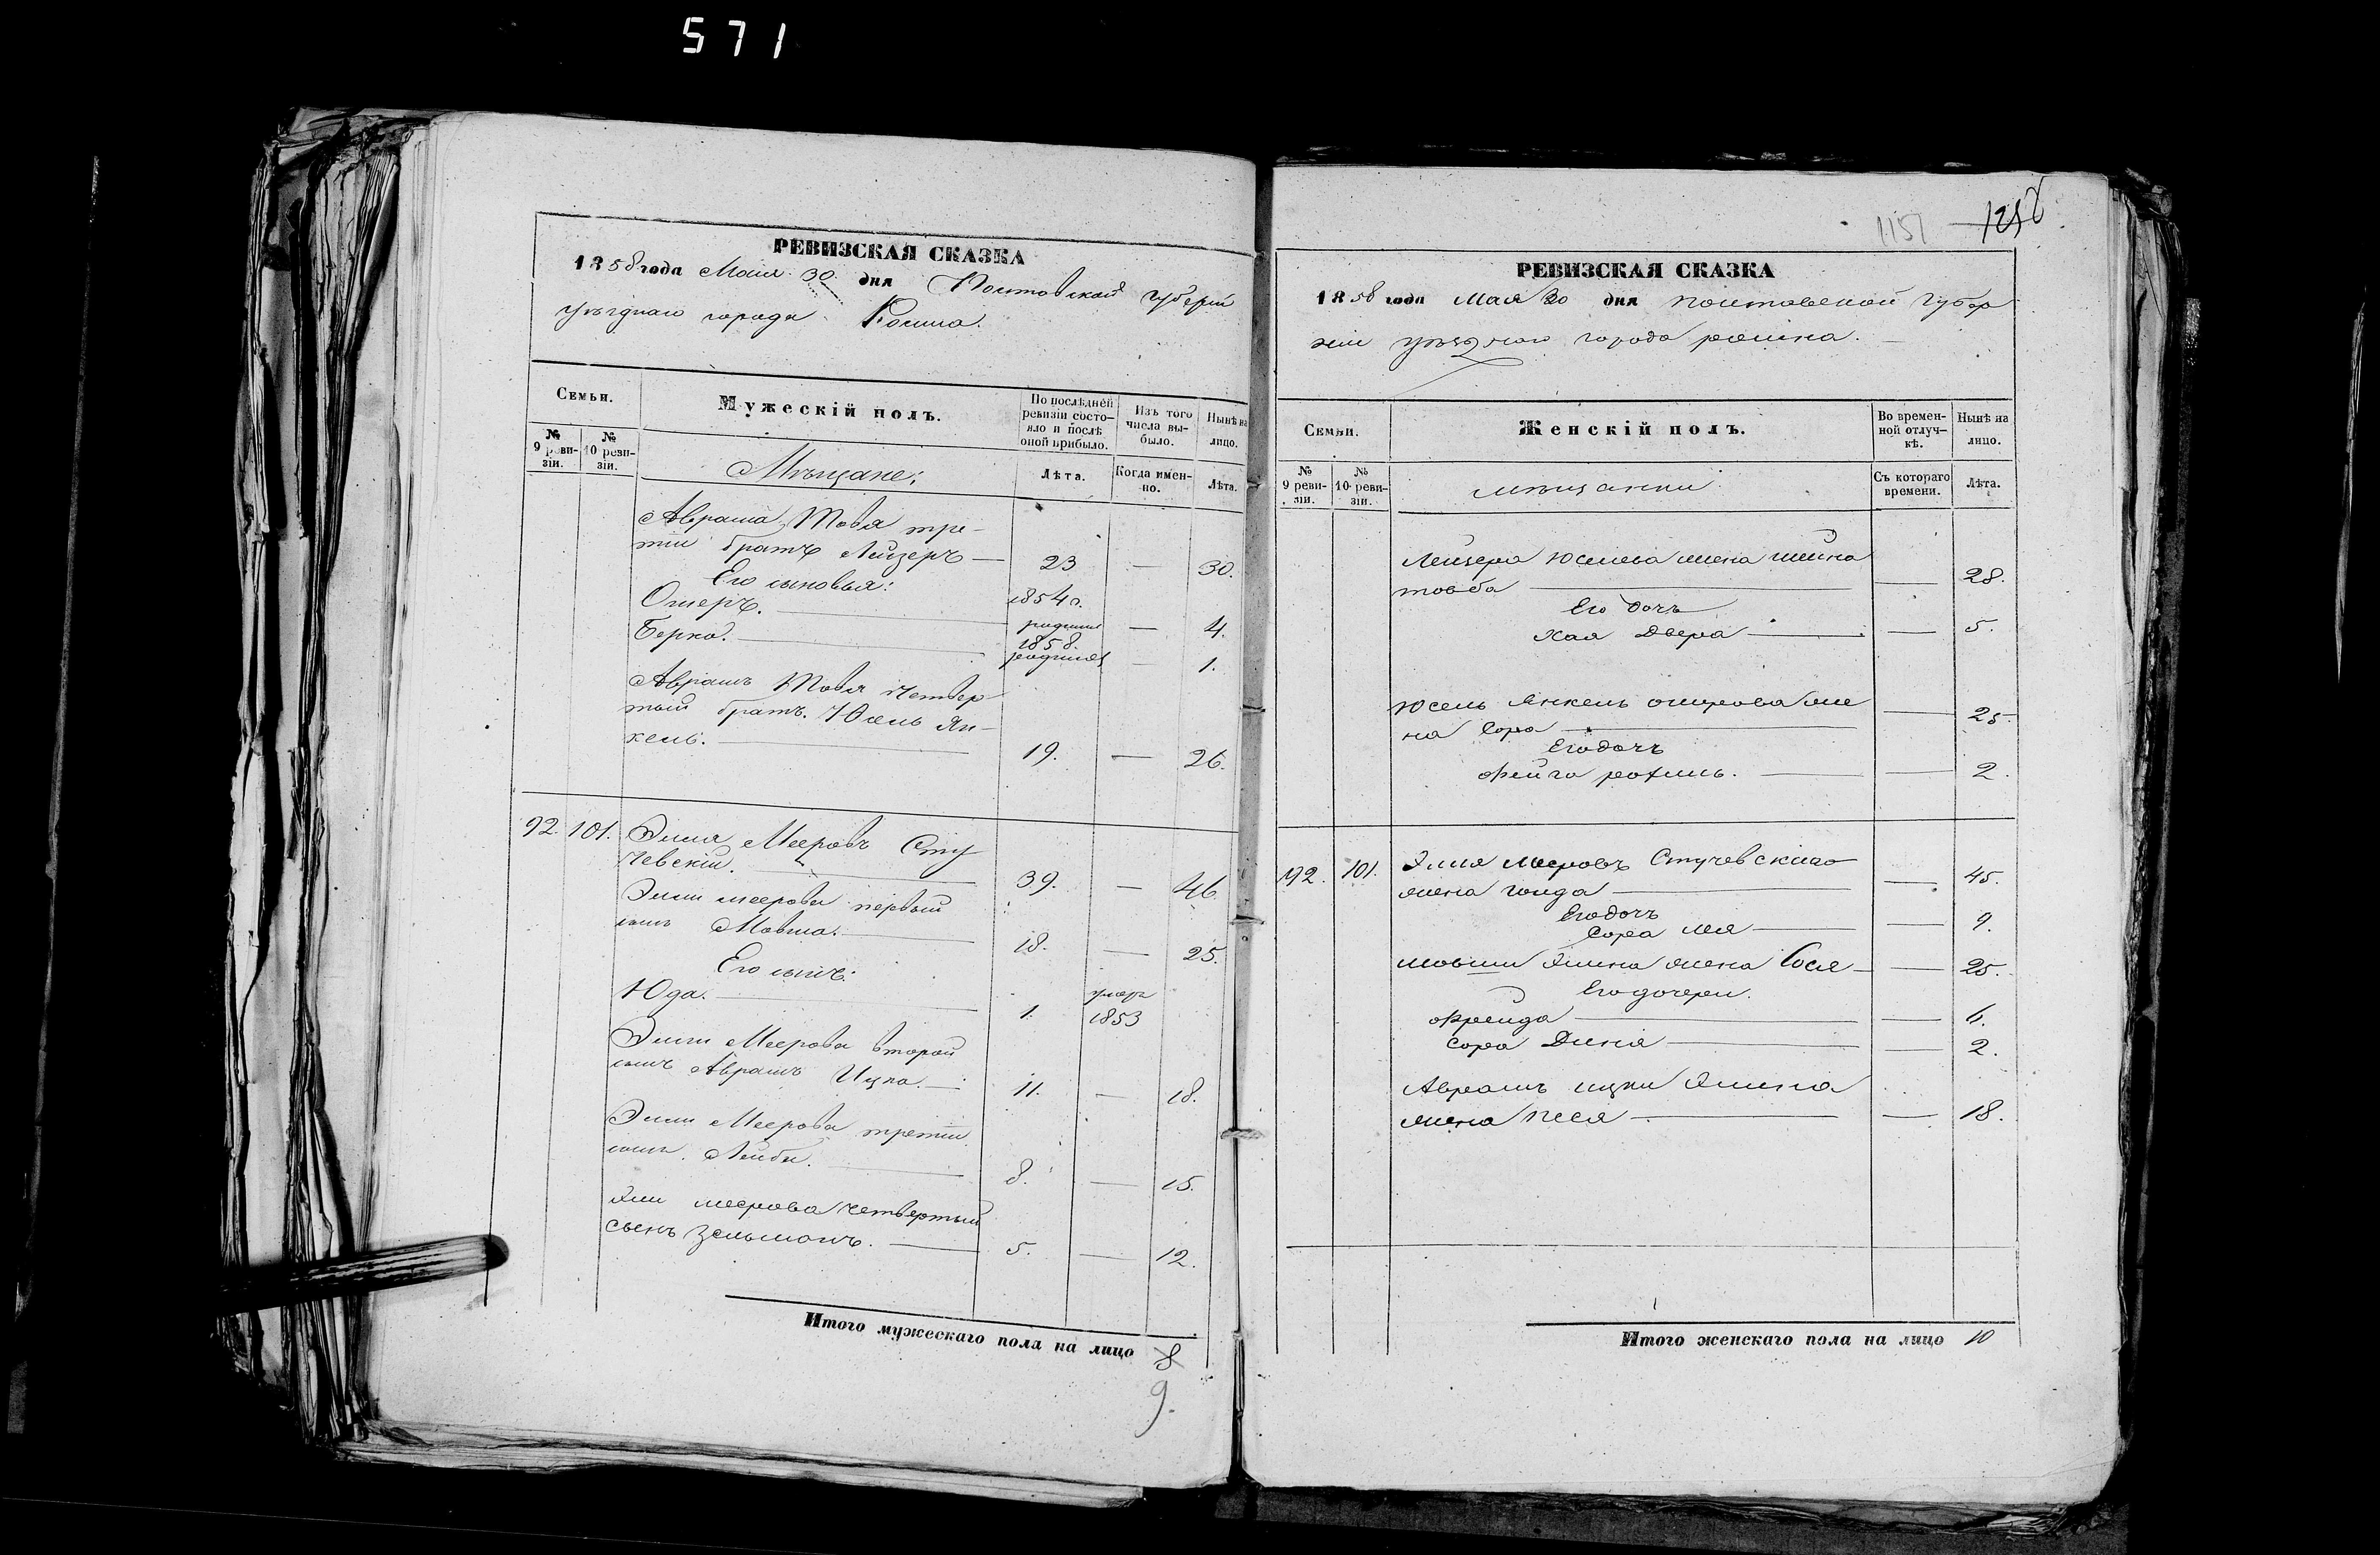 571
РЕВИЗСКАЯ СКАЗКА
1858 года Мая 30 дня Полтавской губерніи
уѣзднаго города Ромна.
Семьи.
Мужескій полъ.
По послѣдней ревизіи состо-
яло и послѣ
оной прибыло.
Изъ того
числа вы-
было.
Нынѣ на
лицо.
№
9 реви-
зіи.
№
10 реви-
зіи.
Мѣщане:
Лѣта.
Когда имен-
но.
Лѣта.
Аврама Товія тре-
тій братъ Лейзеръ — 23 — 30.
Его сыновья:
Ошеръ. — 1854 г. родился — 4.
Берко. — 1858. родился — 1.
Аврамъ Товія четвер-
тый братъ. Юсель Ян-
кель. — 19. — 26.
92. 101. Элия Мееровъ Сту
чевскій. — 39. — 46
Элии меерова первый
сынъ Мовша. — 18. — 25.
Его сынъ:
Юда. — 1. умеръ 1853
Элии Меерова второй
сынъ Аврамъ Ицка. — 11. — 18.
Элии Меерова третій
сынъ Лейба. — 8. — 15.
Элии меерова четвертый
сынъ Зельманъ. — 5. — 12.
Итого мужескаго пола на лицо 8
9.
1151 1258
РЕВИЗСКАЯ СКАЗКА
1858 года Мая 30 дня полтавской губер
ніи уѣзднаго города ромна.
Семьи.
Женскій полъ.
Во времен-
ной отлуч-
кѣ.
Нынѣ на
лицо.
№
9 реви-
зіи.
№
10 реви-
зіи.
мѣщанки
Съ котораго
времени.
Лѣта.
Лейзера Юселева жена шейна
товба — — 28.
Его дочь
Хая Двера — — 5.
Юсель Янкель ошерова же
на Сора — — 25.
Его дочь
Фейга рохель. — — 2.
92. 101. Элия Мееровъ Стучевскаго
жена Голда — — 45.
Его дочь
Сора лея — — 9.
мовши Элина жена Сося — — 25.
Его дочери.
Фрейда — — 6.
Сора Дина — — 2.
Аврамъ ицки Элина
жена Песя — — 18.
Итого женскаго пола на лицо 10